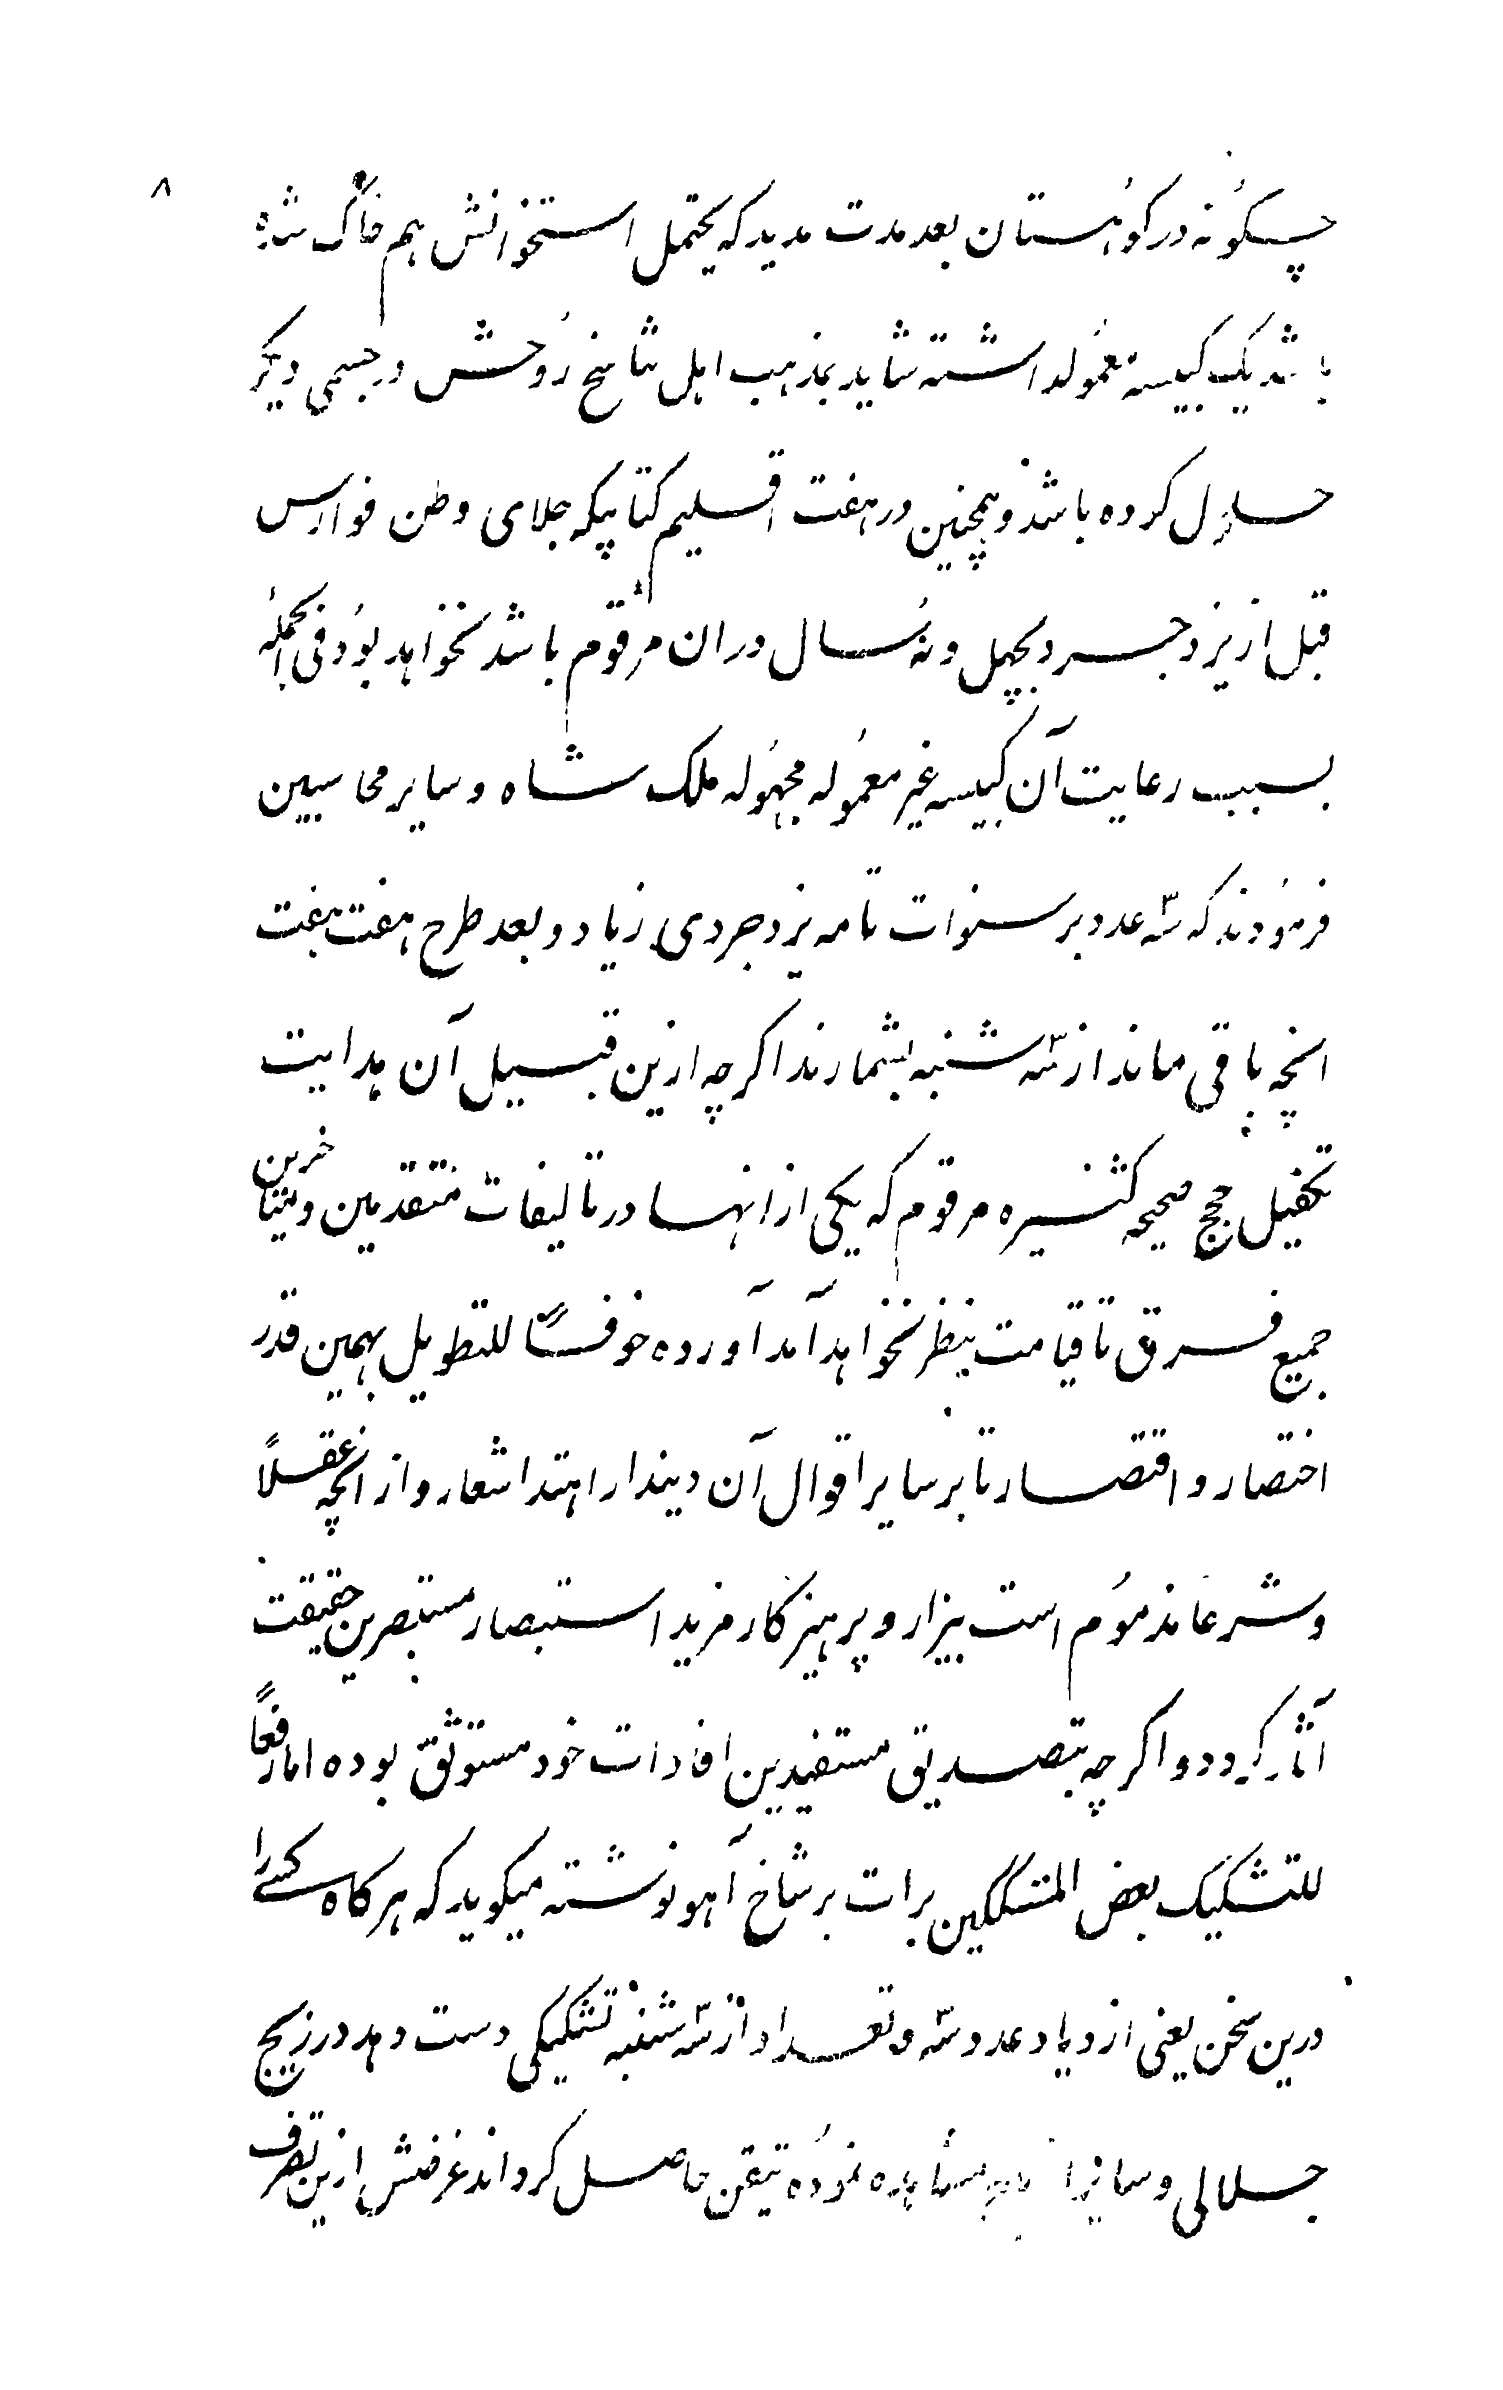 ۸
چسکونه در کوهستان بعد مدت مدید که یحتمل استخوانش هم خاک شده
باشد یک کبیسه معمولداشته شاید بمذهب اهل تناسخ روحش در جسمی دیگر
حلول کرده باشد و همچنین در هفت اقلیم کتابیکه جلای وطن فوارس
قبل از یزدجرد بچهل و نه سال دران مرقوم باشد نخواهد بود فی الجمله
بسبب رعایت آن کبیسه غیر معموله مجهوله ملک شاه و سایر محاسبین
فرمودند که سه عدد بر سنوات تامه یزدجردی زیاد و بعد طرح هفت هفت
انچه باقی ماند از سه شنبه بشمارند اکرچه ازین قبیل آن هدایت
تکفیل حجج صحیحه کثیره مرقوم که یکی از انها در تالیفات متقدمین و متاخرین
جمیع فرق تا قیامت بنظر نخواهد آمد آورده خوفًا للتطویل بهمین قدر
اختصار و اقتصار تا بر سایر اقوال آن دیندار اهتدا شعار و از انچه عقلاً
و شرعا مذموم است بیزار و پرهیزکار مزید استبصار مستبصرین حقیقت
آثار کردد و اکرچه بتصدیق مستفیدین افادات خود مستوثق بوده اما رفعاً
للتشکیک بعض المتشککین برات بر شاخ آهو نوشته میکوید که هرکاه کسے را
درین سخن یعنی ازدیاد عدد سه و تعداد از سه شنبه تشکیکی دست دهد در زیج
جلالی و سایر نموده تیقن حاصل کرداند غرضش ازین تصرف